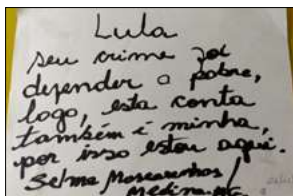 Lula
seu crime foi
defender o pobre,
logo, esta conta
também é minha,
por isso estou aqui.
Selma Mascarenhas
Medina-MG